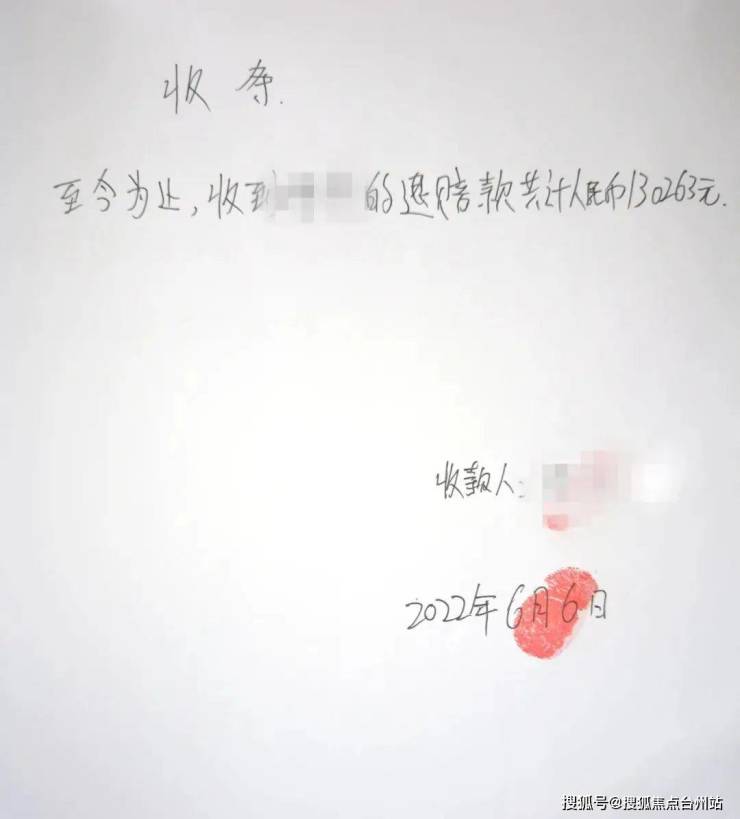 收条.
至今为止,收到的退赔款共计人民币130263元.
收款人:
2022年6月6日
搜狐号@搜狐焦点台州站